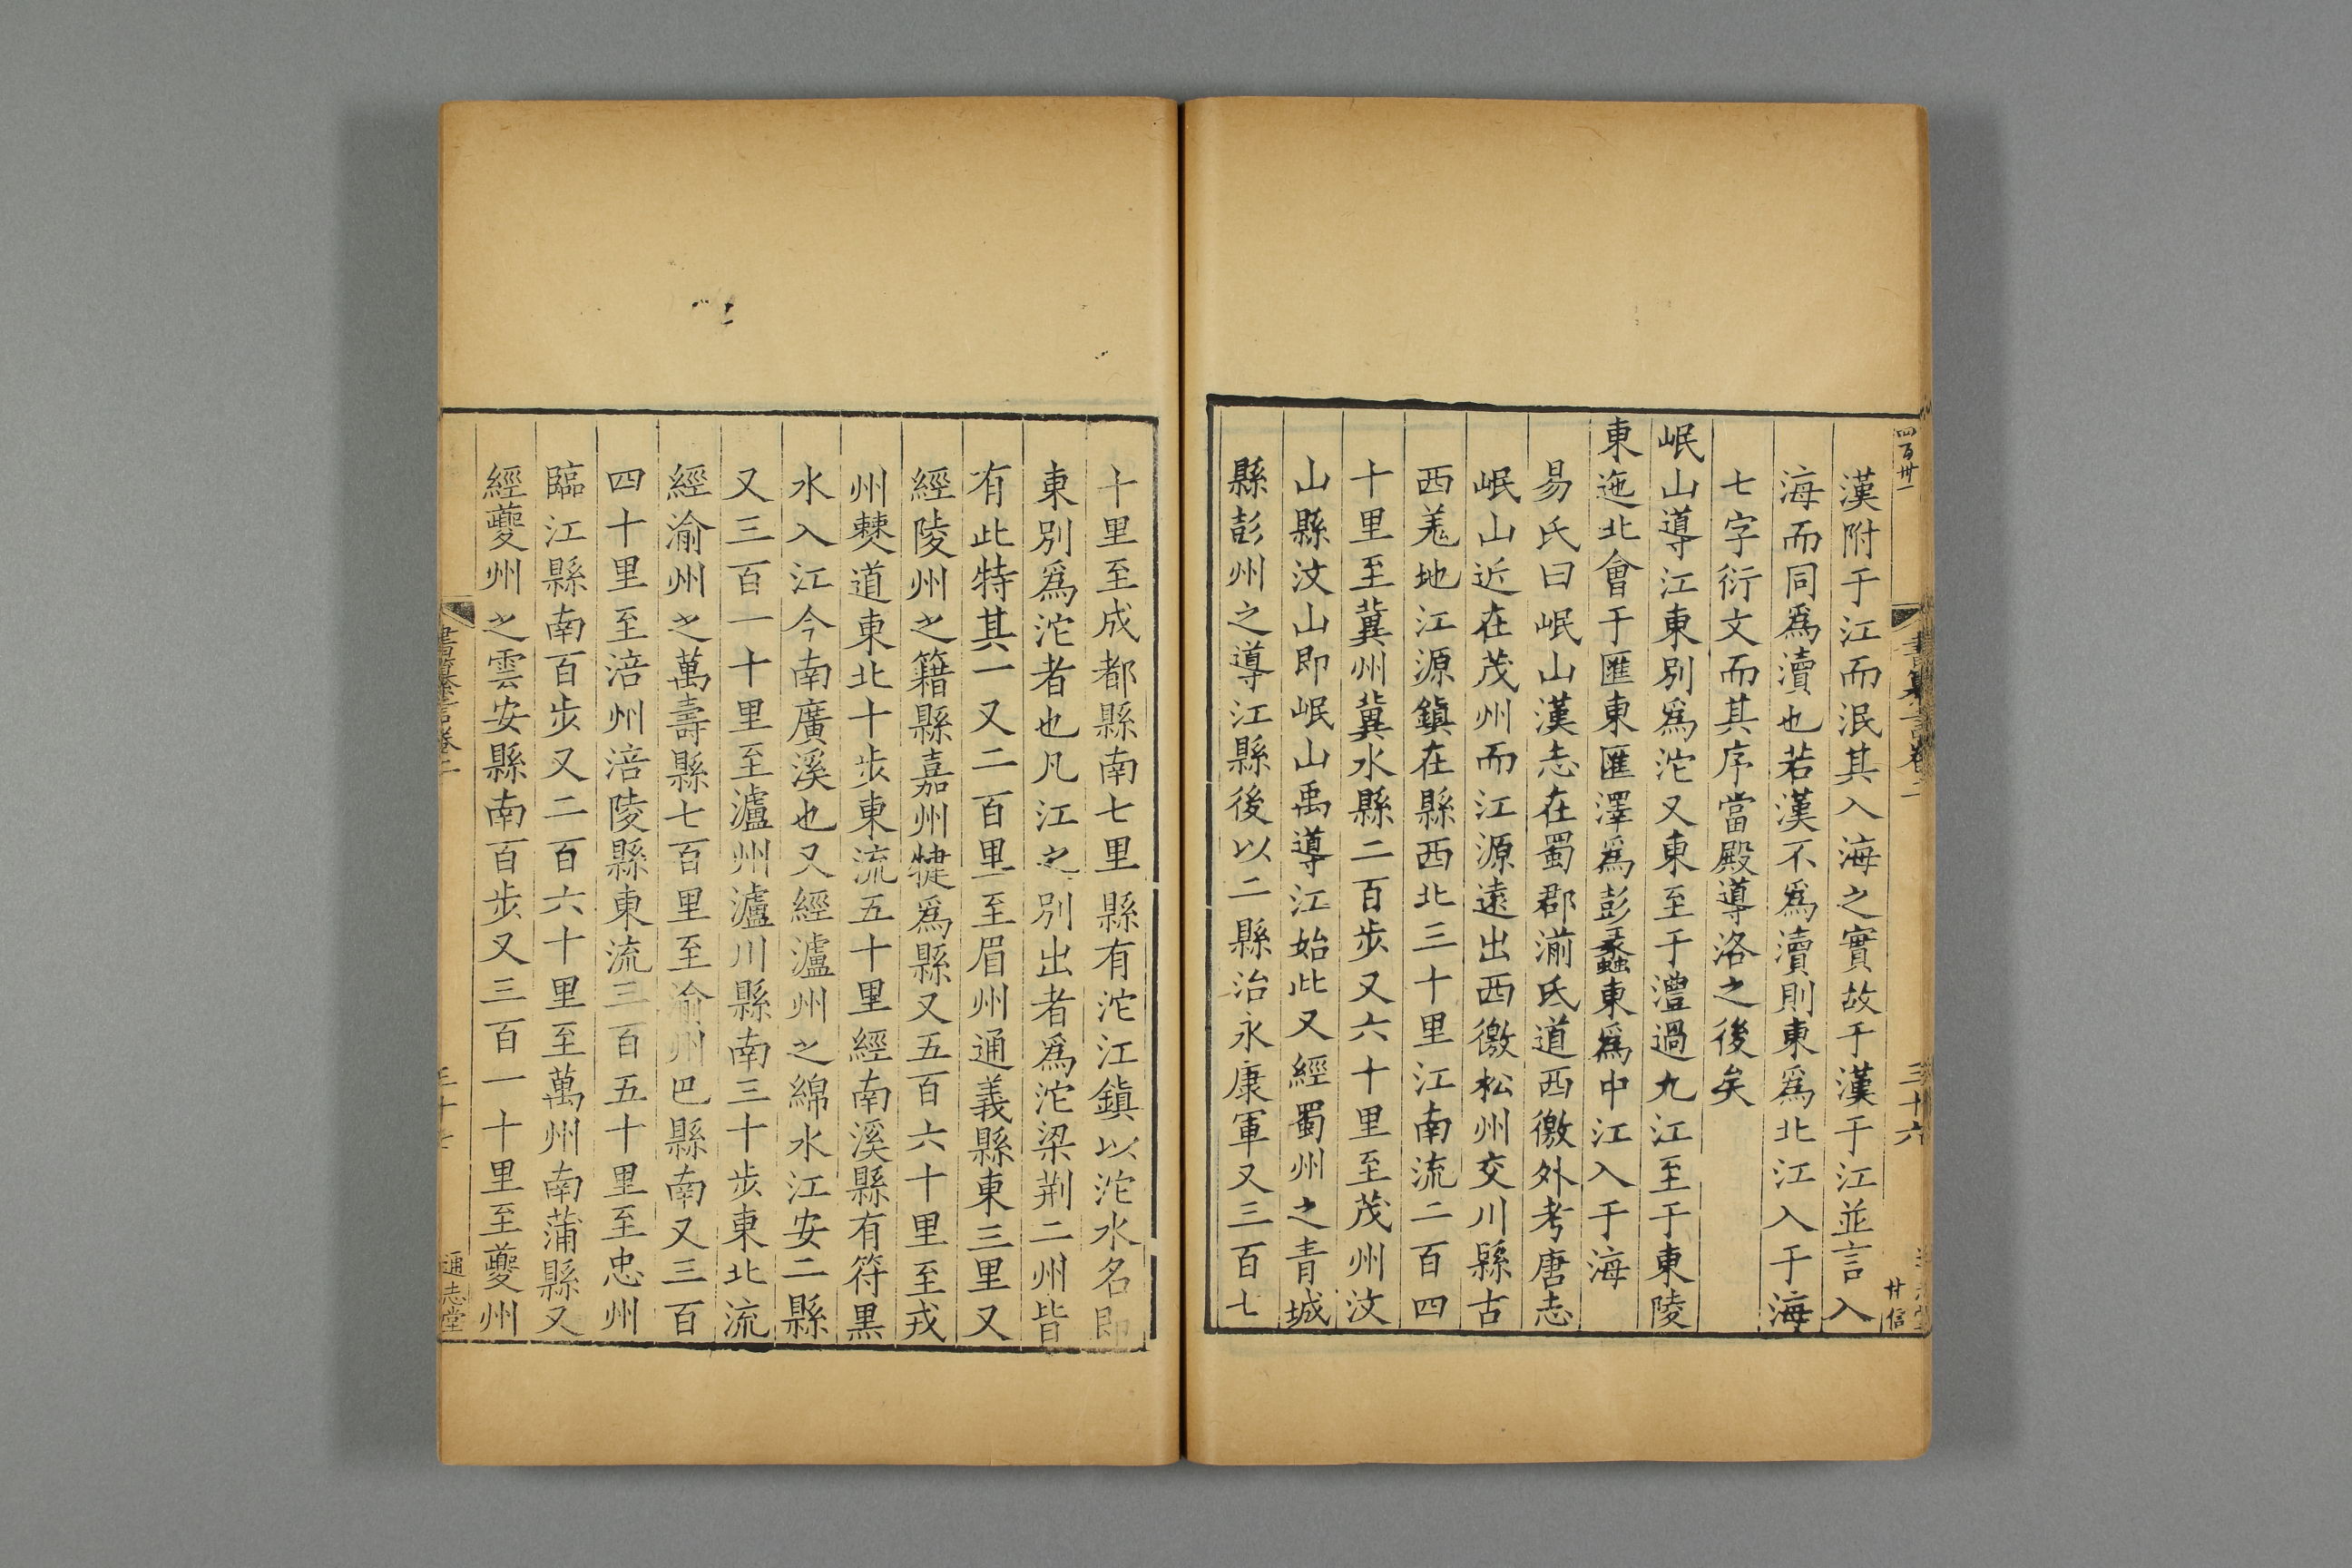 四百卅一
書纂言卷二
三十六
廿信
漢附于江而泯其入海之實故于漢于江並言入
海而同爲瀆也若漢不爲瀆則東爲北江入于海
七字衍文而其序當殿導洛之後矣
岷山導江東別爲沱又東至于澧過九江至于東陵
東迤北會于匯東匯澤爲彭蠡東爲中江入于海
易氏曰岷山漢志在蜀郡湔氐道西徼外考唐志
岷山近在茂州而江源遠出西徼松州交川縣古
西羗地江源鎮在縣西北三十里江南流二百四
十里至冀州冀水縣二百步又六十里至茂州汶
山縣汶山即岷山禹導江始此又經蜀州之青城
縣彭州之導江縣後以二縣治永康軍又三百七
十里至成都縣南七里縣有沱江鎮以沱水名即
東別爲沱者也凡江之別出者爲沱梁荆二州皆
有此特其一又二百里至眉州通義縣東三里又
經陵州之籍縣嘉州犍爲縣又五百六十里至戎
州僰道東北十步東流五十里經南溪縣有符黒
水入江今南廣溪也又經瀘州之綿水江安二縣
又三百一十里至瀘州瀘川縣南三十步東北流
經渝州之萬壽縣七百里至渝州巴縣南又三百
四十里至涪州涪陵縣東流三百五十里至忠州
臨江縣南百步又二百六十里至萬州南蒲縣又
經夔州之雲安縣南百步又三百一十里至夔州
書纂言卷二
通志堂